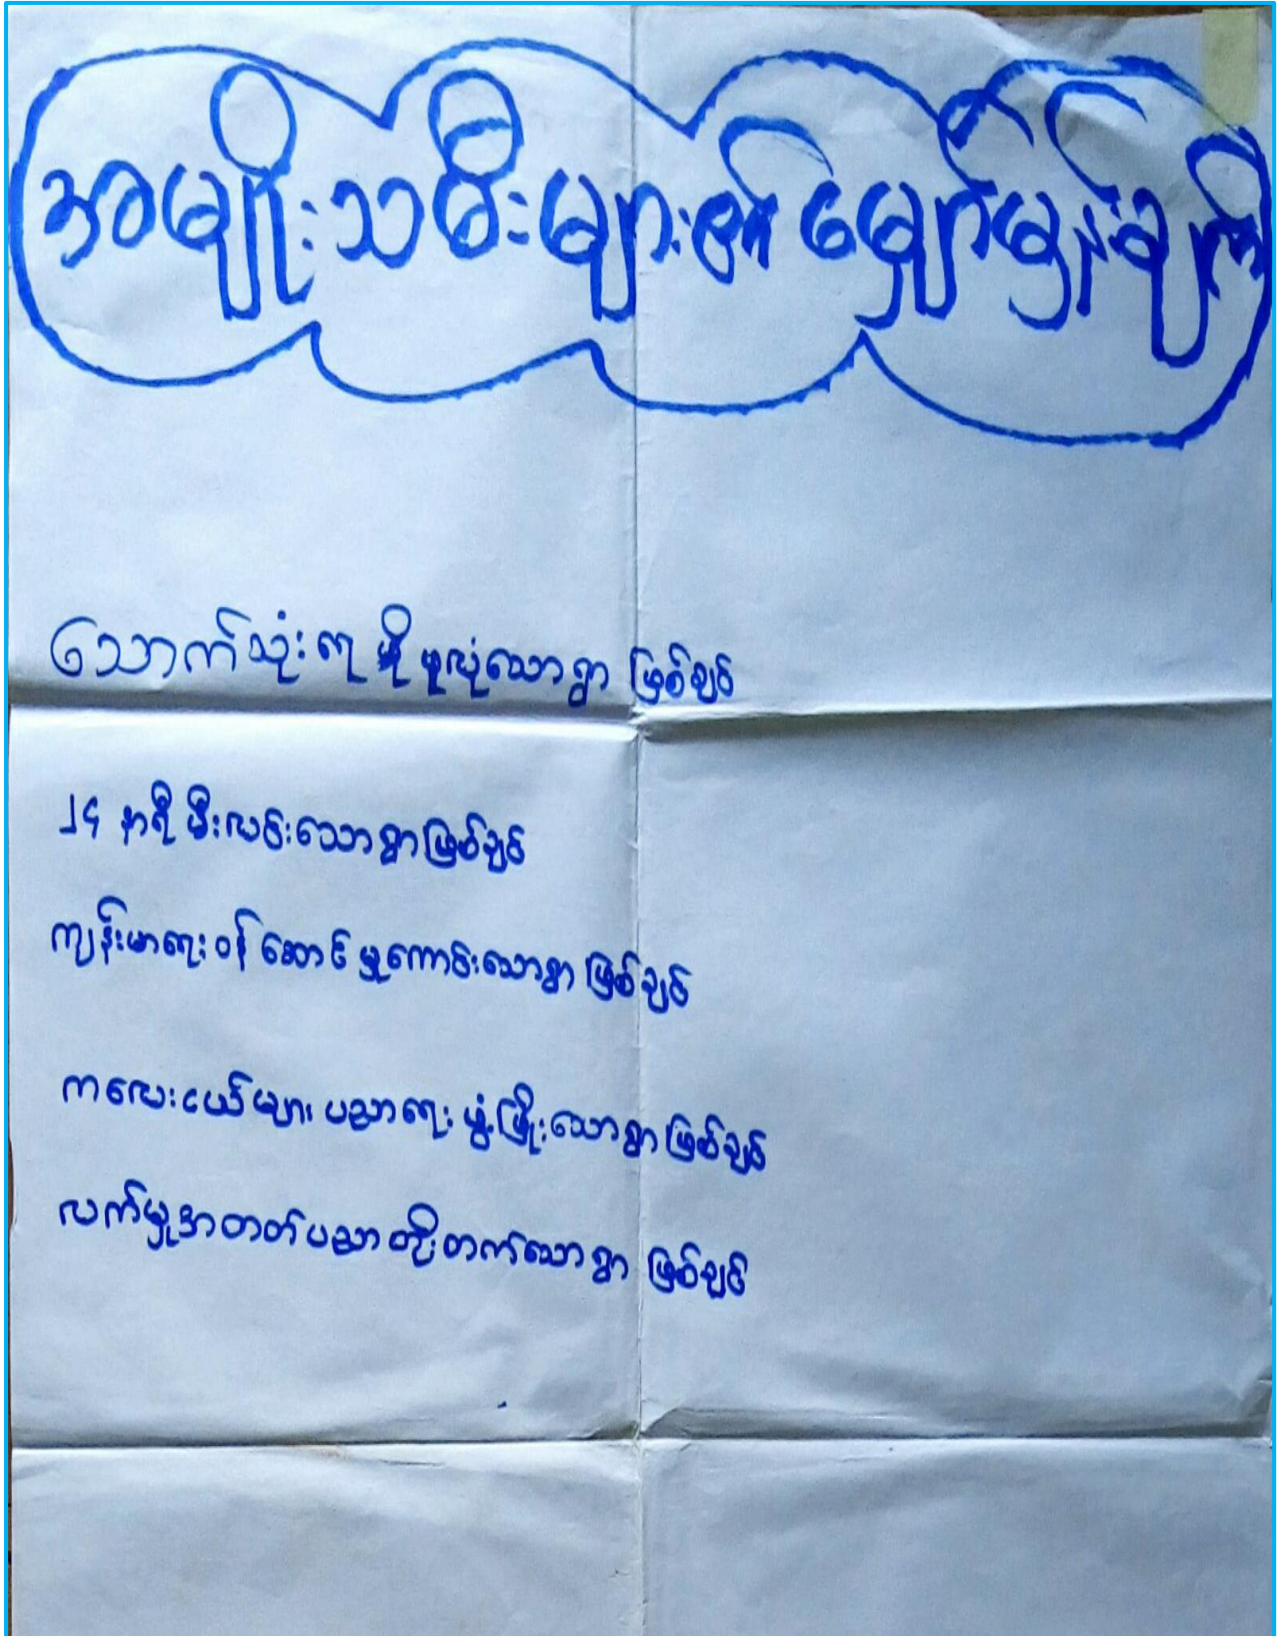 အမျိုးသမီးများ၏ မျှော်မှန်းချက်
သောက်သုံးရေ ဖူလုံသောရွာ ဖြစ်ချင်
၂၄ နာရီ မီးလင်းသောရွာ ဖြစ်ချင်
ကျန်းမာရေး ဝန်ဆောင်မှု ကောင်းသောရွာ ဖြစ်ချင်
ကလေးငယ်များ ပညာရေး ဖွံ့ဖြိုးသောရွာ ဖြစ်ချင်
လက်မှုအတတ်ပညာ တိုးတက်သောရွာ ဖြစ်ချင်